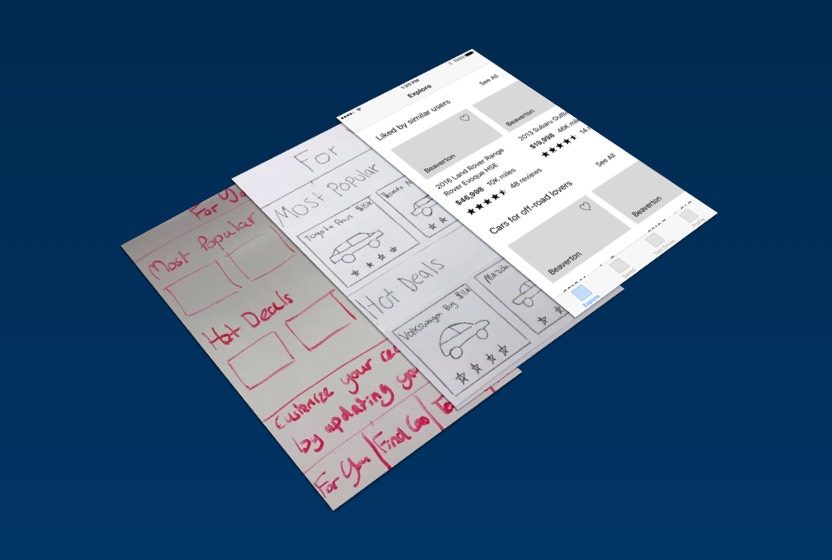 For You
Most Popular
Hot Deals
Customize your
by updating you
For You
Find Car
For
Most Popular
Toyota Prius $15K
Hot Deals
Volkswagen Bg $11K
Mazda
100%
Explore
Liked by similar users
See All
Beaverton
Beaverton
2016 Land Rover Range
Rover Evoque HSE
$46,998 10K miles
48 reviews
2013 Subaru Outb
$19,998 46K mi
14 r
Cars for off-road lovers
See All
Beaverton
Beaverton
Explore